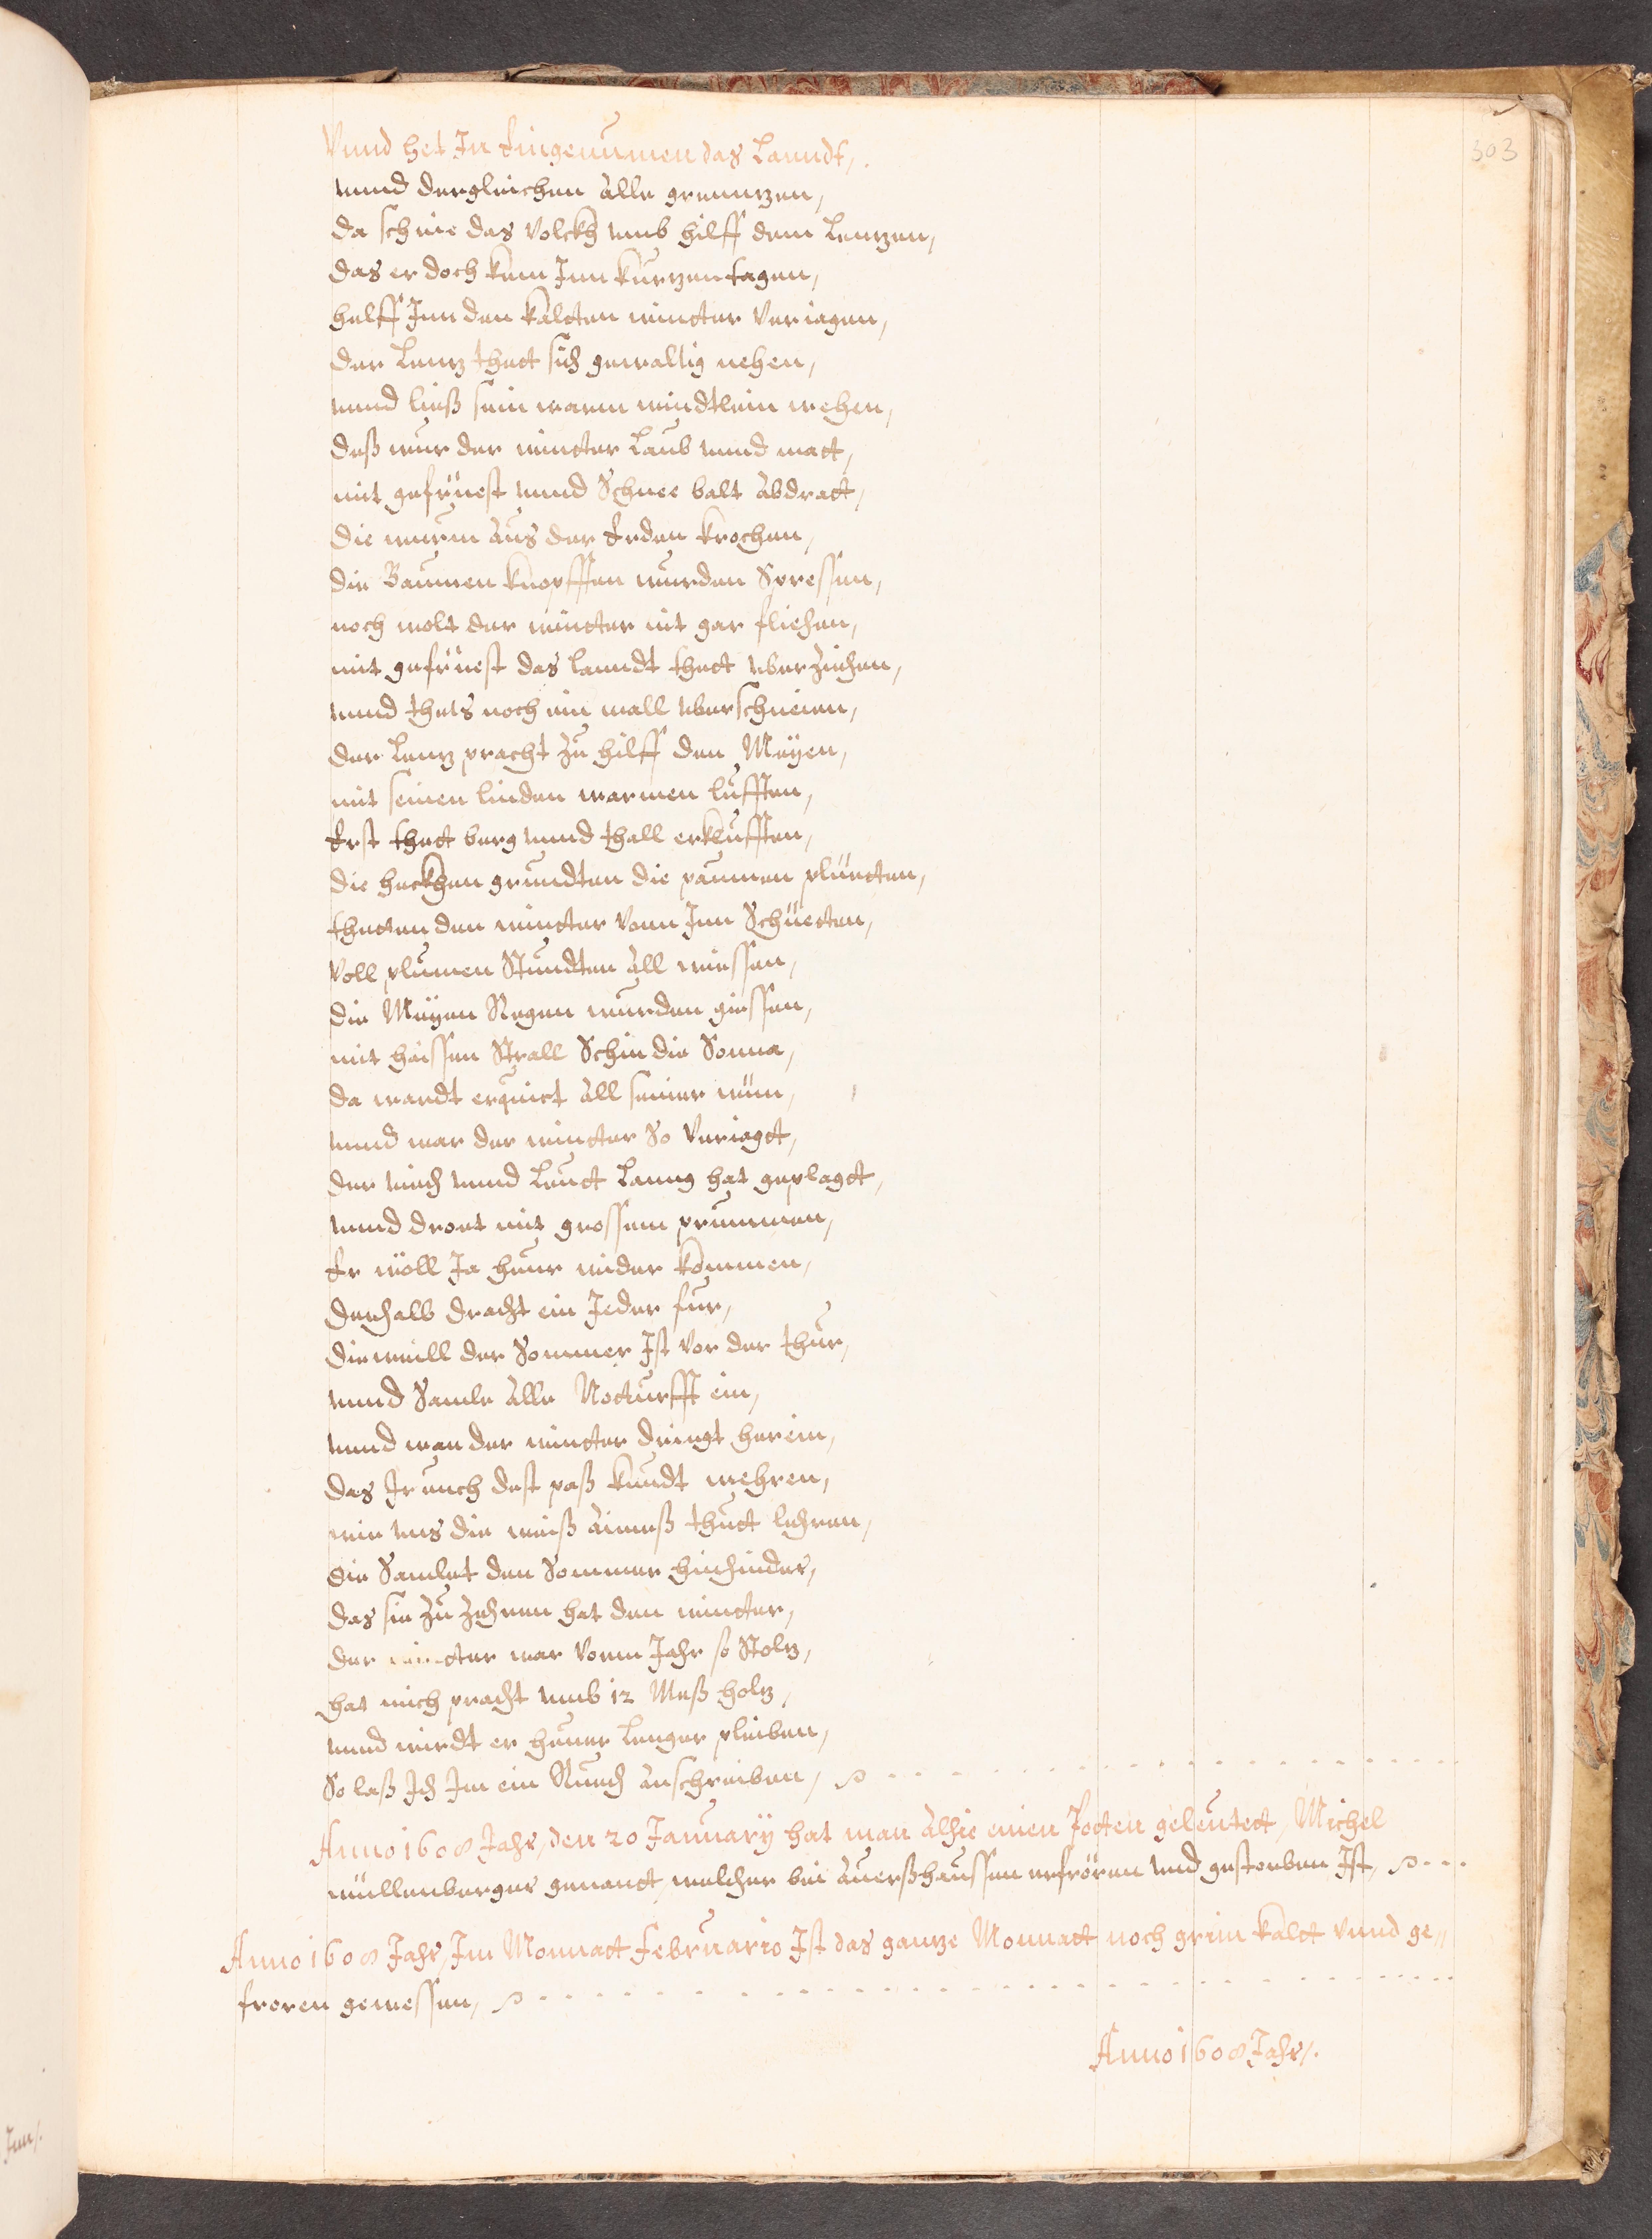 303
Vnnd het In Eingenumen das Lanndt,.
vnnd dergleichen Alle grenntzen,
da schrie das Volckh vmb hilff dem Lentzen,
das er doch kem Inn kurtzen tagen,
helff Inn den kaltten wintter Veriagen,
der Lentz thett sich gewaltig nehen,
vnnd ließ sein warm windtlein wehen,
deß wur der wintter Laub vnnd matt,
mit gefrüest vnnd Schnee balt Abdratt,
die wurm Aus der Erden krochen,
die Baumen knopffen wurden Spressen,
noch wolt der wintter nit gar fliehen,
mit gefrüest das lanndt thett vberziehen,
vnnd thets noch ein mall vberschneien,
der Lentz pracht zu hilff den Meyen,
mit seinen linden warmen lufften,
Erst thett berg vnnd thall erklufften,
die heckhen grundten die paumen pluetten,
thetten den wintter vonn Inn Schuetten,
Voll plumen Stundten All wiessen,
die Meyen Regen wurden giessen,
mit haissen Strall Schin die Sonna,
da wardt erquict All seiner wun,
vnnd war der wintter So Veriagtt,
der viech vnnd Leutt Lanng hat geplagtt,
vnnd dront mit grossem prummen,
Er wöll Ja heur wider kommen,
derhalb dracht ein Jeder fur,
die weill der Sommer Ist vor der thur,
vnnd Samle Alle Notturfft ein,
vnnd wan der wintter dringt herein,
das Ir euch dest paß kundt wehren,
wie vns die weiß Aimeß thutt lehren,
die Samlet den Sommer hinhinder,
das sie zu zehren hat den wintter,
der wintter war vorm Jahr so Stoltz,
hat mich pracht vmb 12 Meß holtz,
vnnd wirdt er heuer Lenger pleiben,
So laß Ich Im ein Rueh Anschreiben,
Anno 1608 Jahr, den 20 January hat man Alhie einen Totten geleutett, Michel
müllenberger genantt, welcher bei Auerßhaussen erfroren vnd gestorben Ist,
Anno 1608 Jahr, Im Monnatt Februario Ist das gantze Monnatt noch grim kalt vnnd ge„
froren gewessen,
Anno 1608 Jahr,.